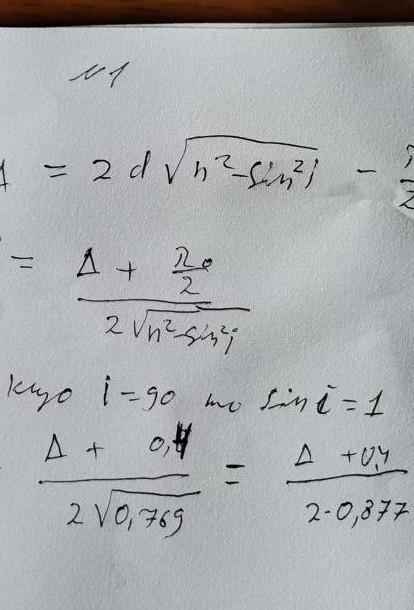 №1
Δ = 2d√(n²-sin²i) - λ/2
= (Δ + λ₀/2) / (2√(n²-sin²i))
i=90 то sin i=1
(Δ + 0,4) / (2√0,769) = (Δ +0,4) / (2·0,877)